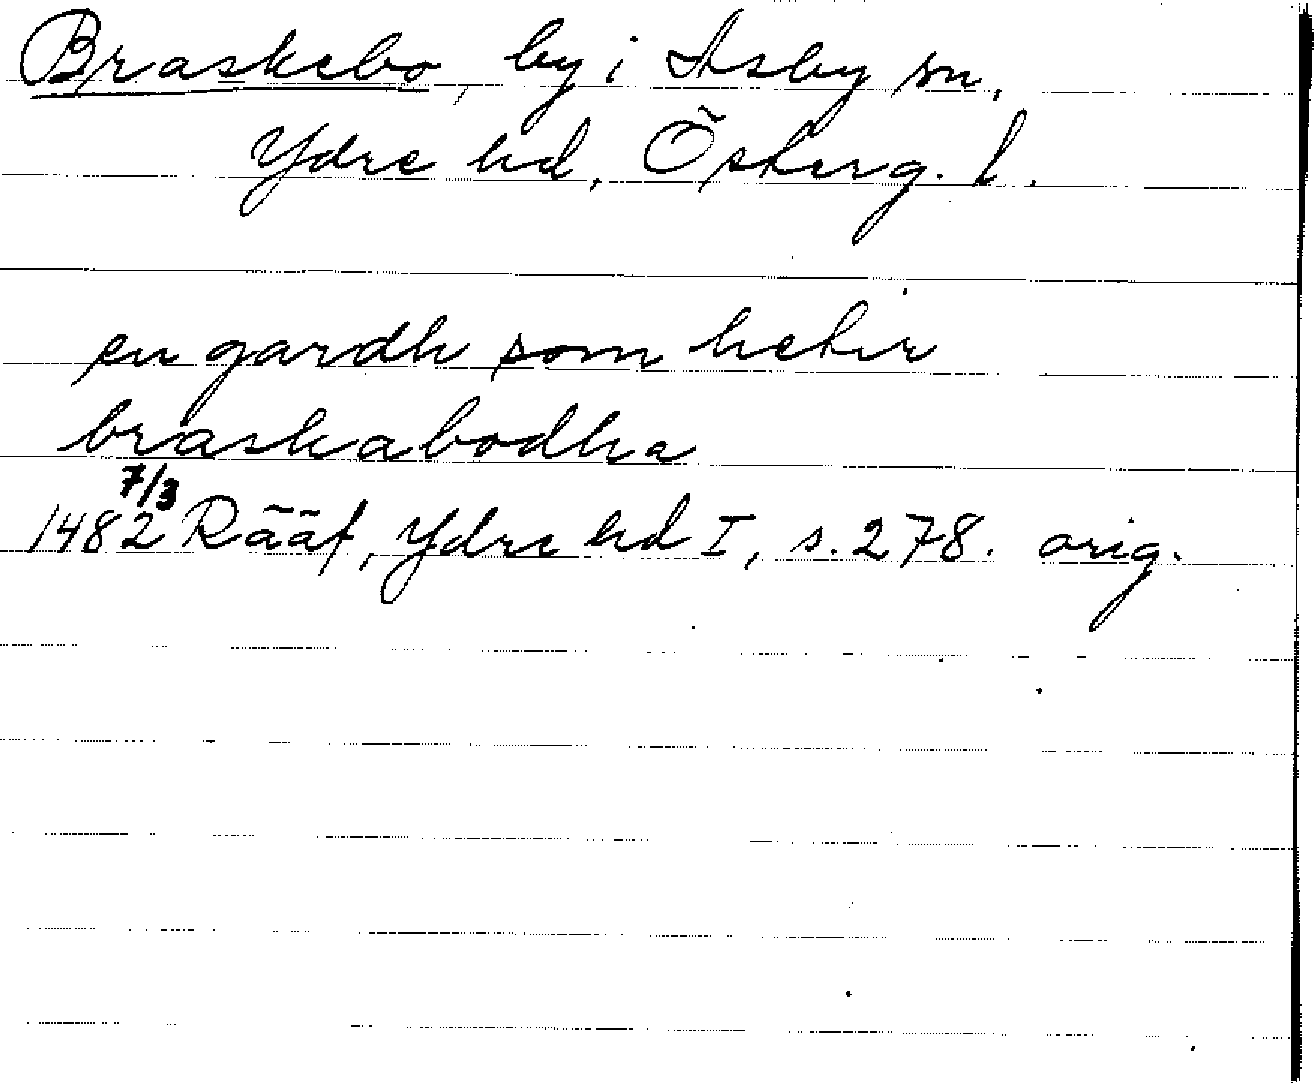 Braskebo, by i Asby sn,
Ydre hd, Österg. l.
en gardh som hetir
braskabodha
7/3
1482 Rääf, Ydre hd I, s. 278. orig.